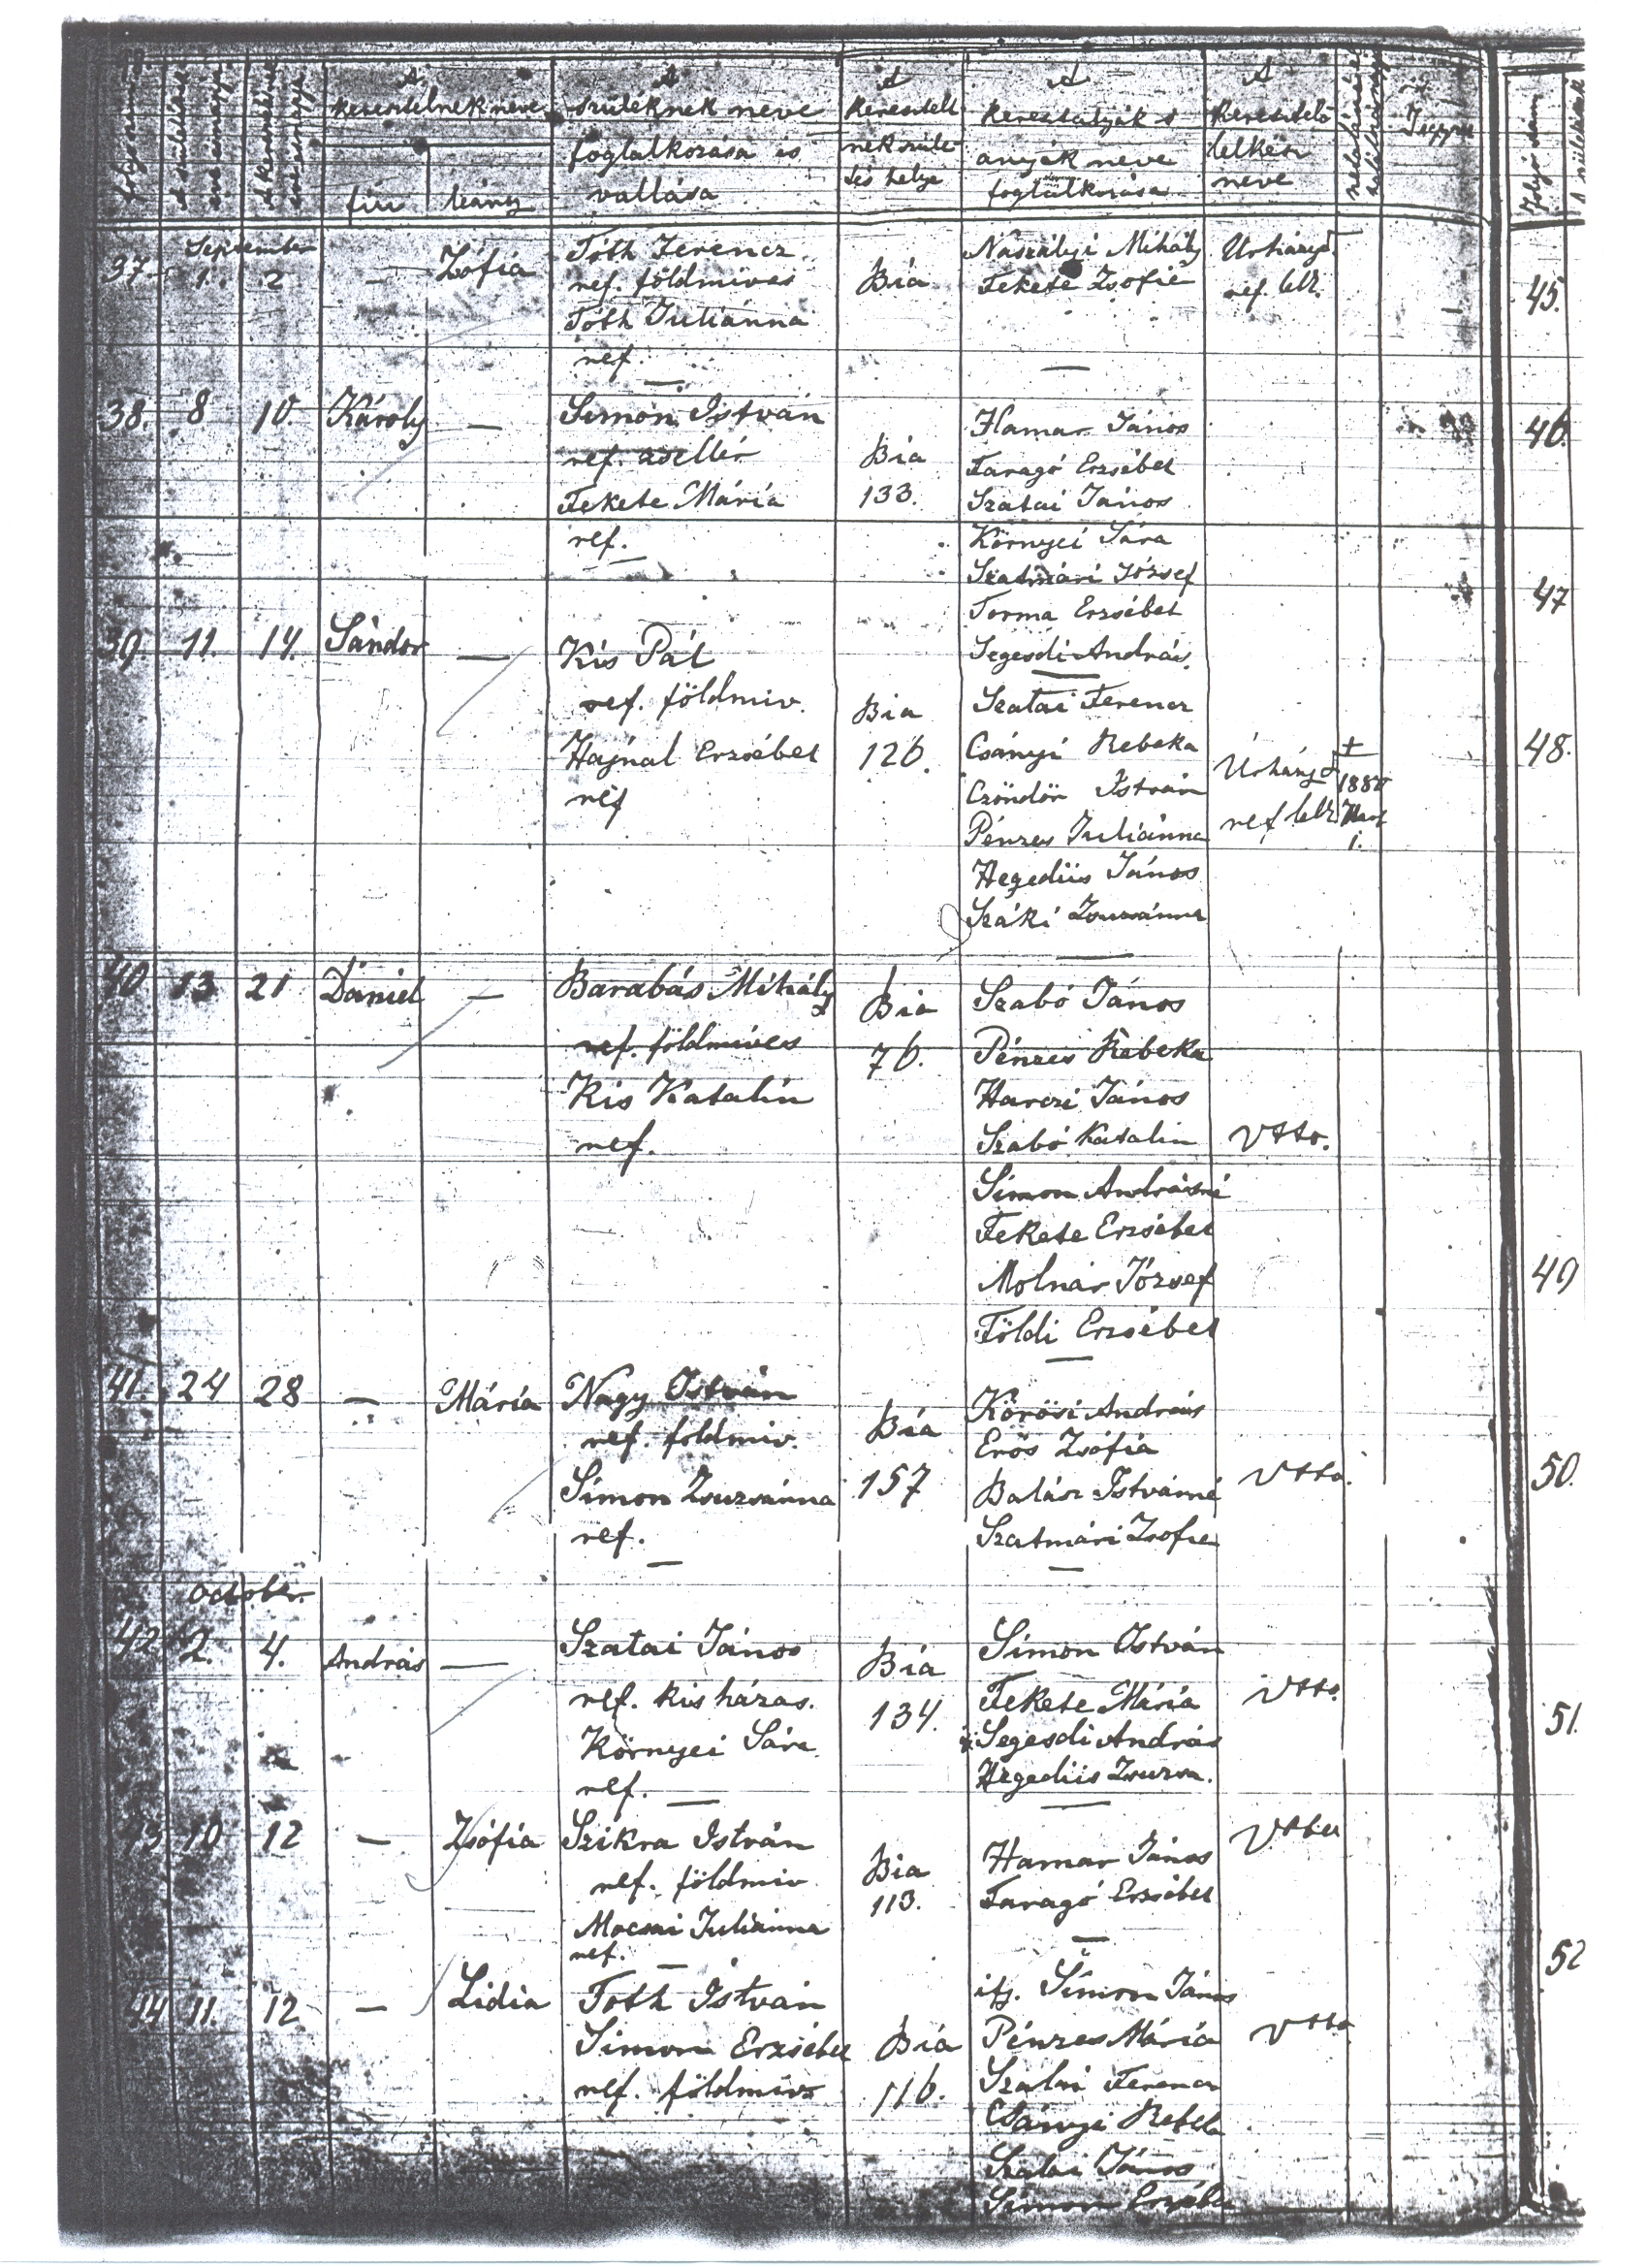 A kereszteltnek neve
fiu
leány
A szüléknek neve
foglalkozása és
vallása
A keresztelt
nek születé
sés helye
A keresztatyák s
anyák neve
foglalkozása
A keresztelő
lelkész
neve
September
37 1. 2 — Zófia
Tóth Ferencz
ref. földmíves
Tóth Juliánna
ref.
Bia
Naszályi Mihály
Fekete Zsofie
Úrházy
ref. lelk.
38. 8 10. Károly —
Simon István
ref. zsellér
Fekete Mária
ref.
Bia
133.
Hamar János
Faragó Erzsébet
Szatai János
Környei Sára
Szatmári József
Torma Erzsébet
Segesdi András
39. 11. 14. Sándor —
Kis Pál
ref. földmiv.
Hajnal Erzsébet
ref
Bia
126.
Szatai Ferencz
Csányi Rebeka
Czöndör István
Pénzes Juliánna
Hegedüs János
Száki Zsuzsánna
ref lelk.
40 13 21 Dániel —
Barabás Mihály
ref. földmíves
Kis Katalin
ref.
Bia
76.
Szabó János
Pénzes Rebeka
Harczi János
Szabó Katalin
Simon Andrásné
Fekete Erzsébet
Molnár József
Földi Erzsébet
Utto.
41. 24 28 — Mária
Nagy István
ref. földmiv.
Simon Zsuzsánna
ref.
Bia
157
Körösi András
Erös Zsófia
Balász Istvánné
Szatmári Zsofie
Utto.
October.
42 2. 4. András —
Szatai János
ref. kis házas.
Környei Sára
ref.
Bia
134.
Simon István
Fekete Mária
Segesdi András
Hegedüs Zsuzsa.
Utto.
43 10 12 — Zsófia
Szikra István
ref. földmiv
Mocsai Juliánna
ref.
Bia
113.
Hamar János
Faragó Erzsébet
44 11. 12 — Lidia
Tóth István
Simon Erzsébet
ref. földmívs
Bia
116.
ifj. Simon János
Pénzes Mária
Szalai Ferencz
Csányi Rebek
Szalai János
Simon Erzsébe
Utto
45.
46.
47
48.
49
50.
51.
52